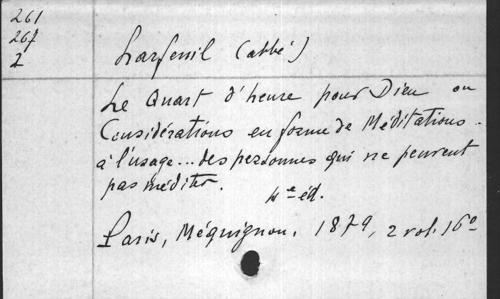 261
267
2
Larfeuil (abbé)
Le Quart d'heure pour Dieu ou
Considérations en forme de Méditations
à l'usage... des personnes qui ne peuvent
pas méditer.
4e éd.
Paris, Méquignon, 1879, 2 vol. 16°